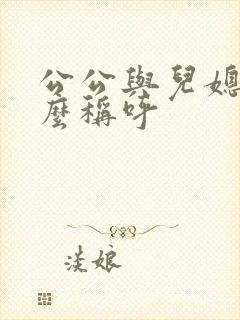 公公與兒媳
麼稱呼
淡娘